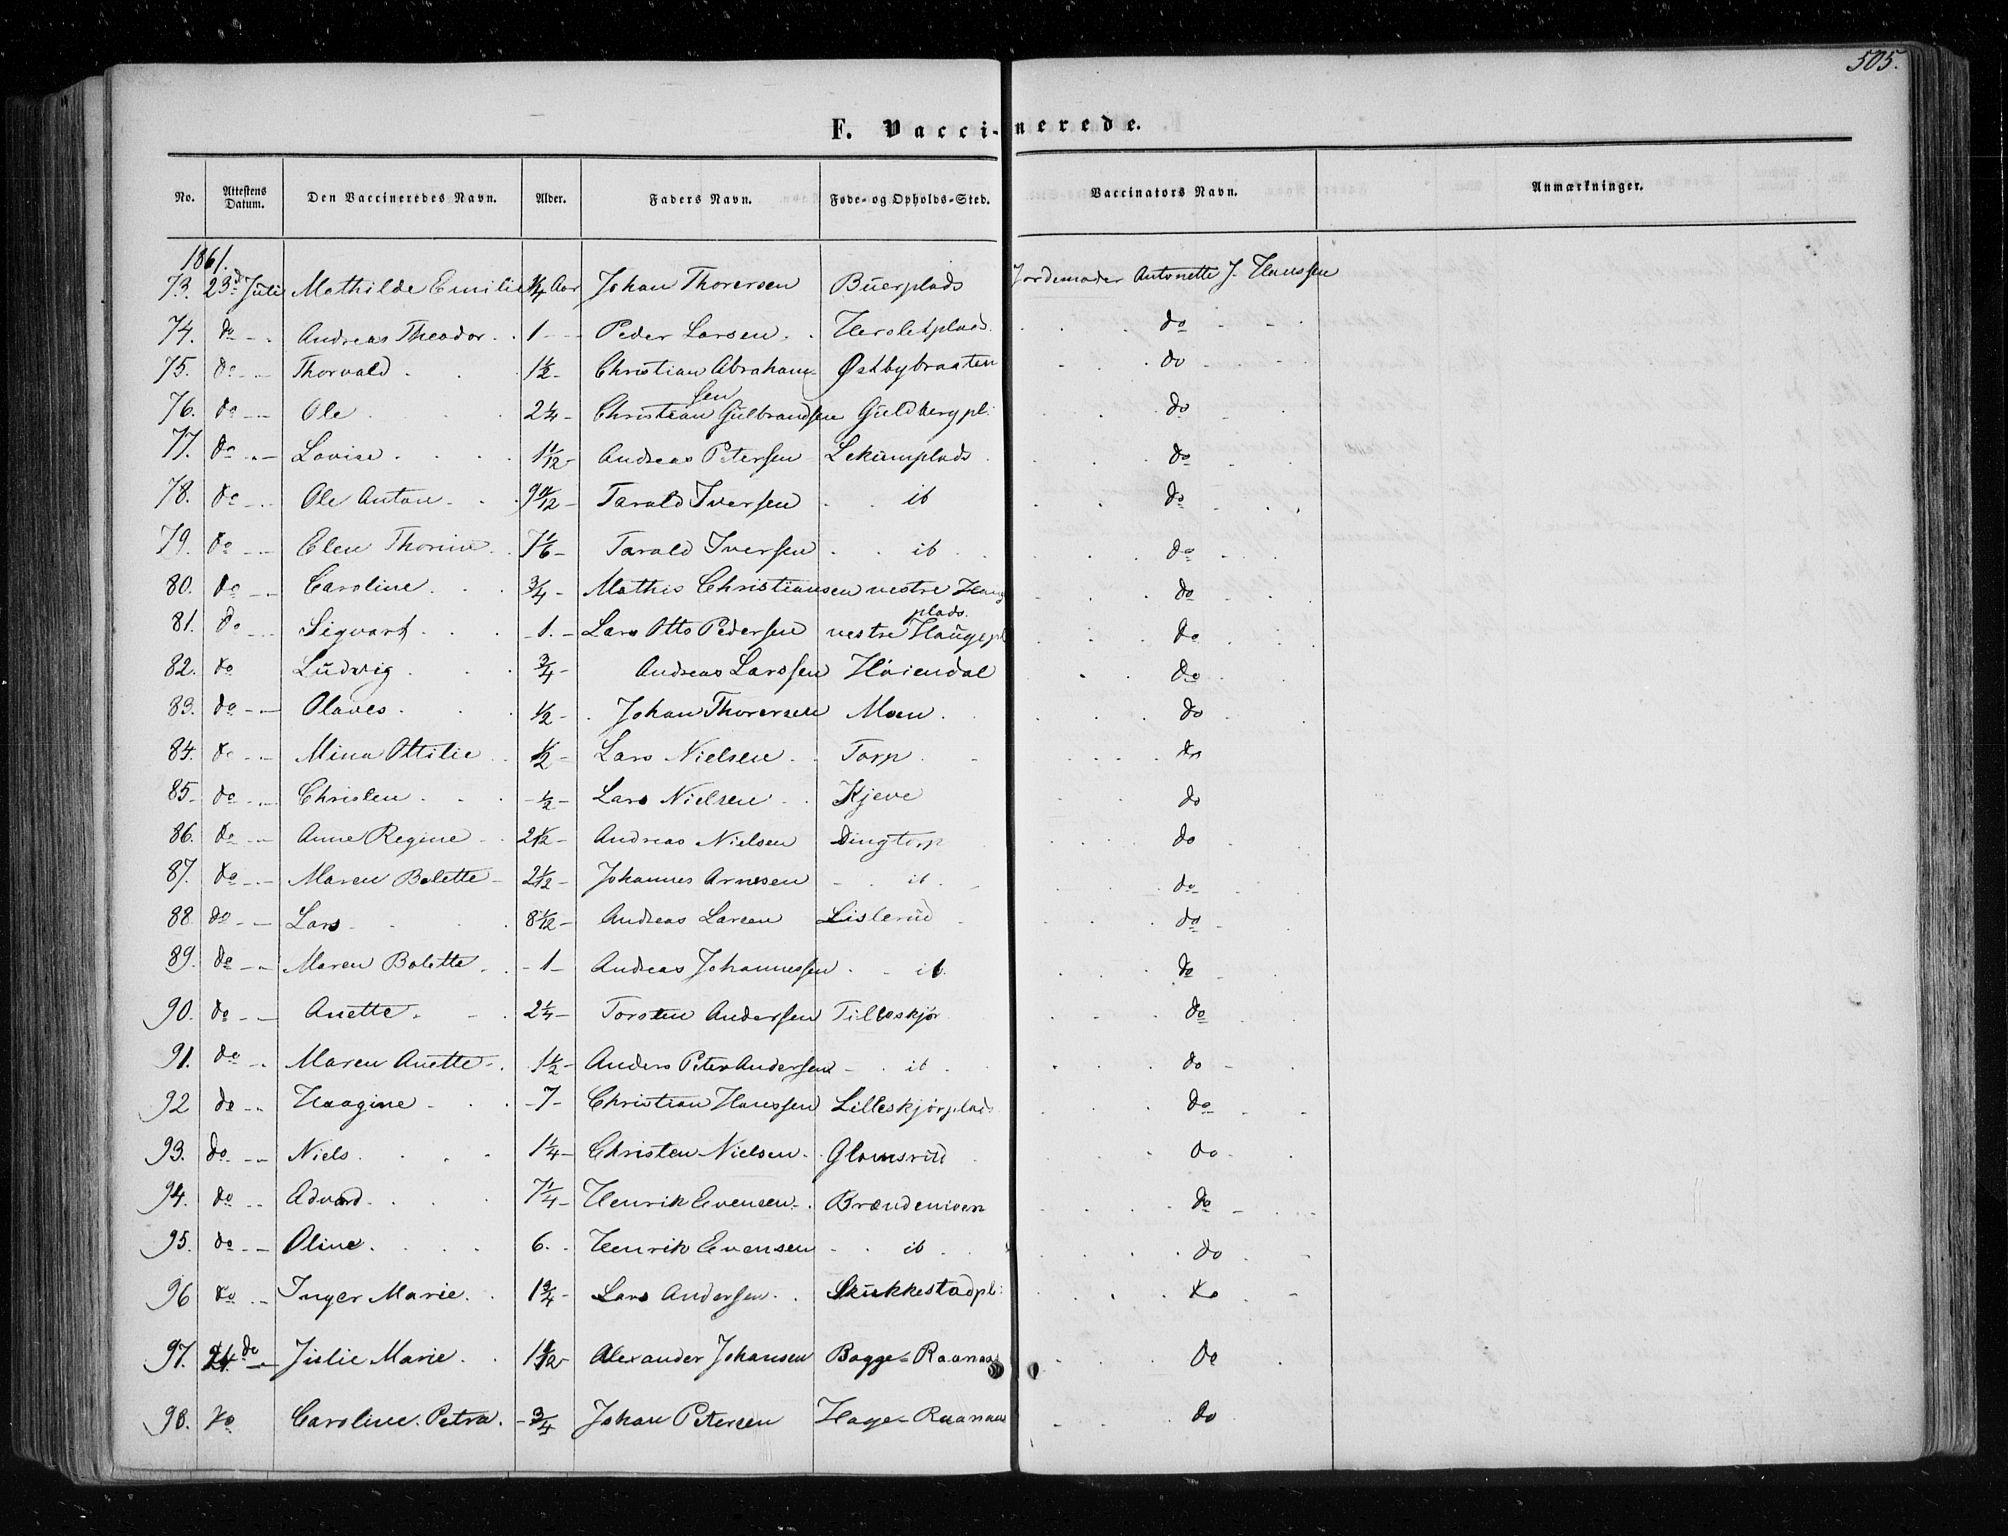 505.
F. Vaccinerede.
No. Attestens Datum. Den Vaccineredes Navn. Alder. Faders Navn. Føde- og Opholds-Sted. Vaccinators Navn. Anmærkninger.
1861.
73. 23d Juli Mathilde Emilie 3/4 Aar Johan Thoresen Buerplads Jordemoder Antonette J. Hanssen
74. do Andreas Theodor 1 Peder Larsen do
75. do Thorvald 1 1/2 Christian Abraham- Østbybraaten do
sen
76. do Ole 2 1/4 Christian Gulbrandsen Guldbergpl: do
77. do Lovise Andreas Petersen Lekumplads do
78. do Ole Anton Tarald Iversen ib do
79. do Elen Thorine 7 1/6 Tarald Iversen ib do
80. do Caroline 3/4 Mathis Christiansen vestre Haug do
plads.
81. do Sigvart 1. Lars Otto Pedersen vestre Haugepl do
82. do Ludvig 3/4 Andreas Larssen Høiendal do
83. do Olaves 1/2 Johan Thoresen Moen do
84. do Mina Ottilie 1/2 Lars Nielsen Torp do
85. do Christen 1/2 Lars Nielsen Kjeve do
86. do Anne Regine 2 1/2 Andreas Nielsen Dingtorp do
87. do Maren Bolette 2 1/2 Johannes Arnesen it do
88. do Lars 8 1/2 Andreas Larsen Lislerud do
89. do Maren Bolette 1 Andreas Johannessen ib. do
90. do Anette 2 1/4 Torsten Andersen do
91. do Maren Anette 1 1/2 Anders Peter Andersen it do
92 do Haagine 7 Christian Hanssen Lilleskjørplads do
93. do Niels 1 1/4 Christen Nielsen Glomsrud do
94. do Edvard 7 1/4 Henrik Evensen Brændemoen do
95. do Oline 6. Henrik Evensen ib do
96 do Inger Marie 1 3/4 Lars Andersen Skukkestadpl: do
97. 24 do Julie Marie Alexander Johansen Bagge-Raanaas do
98. do Caroline Petra 3/4 Johan Petersen Hage-Raanaas do